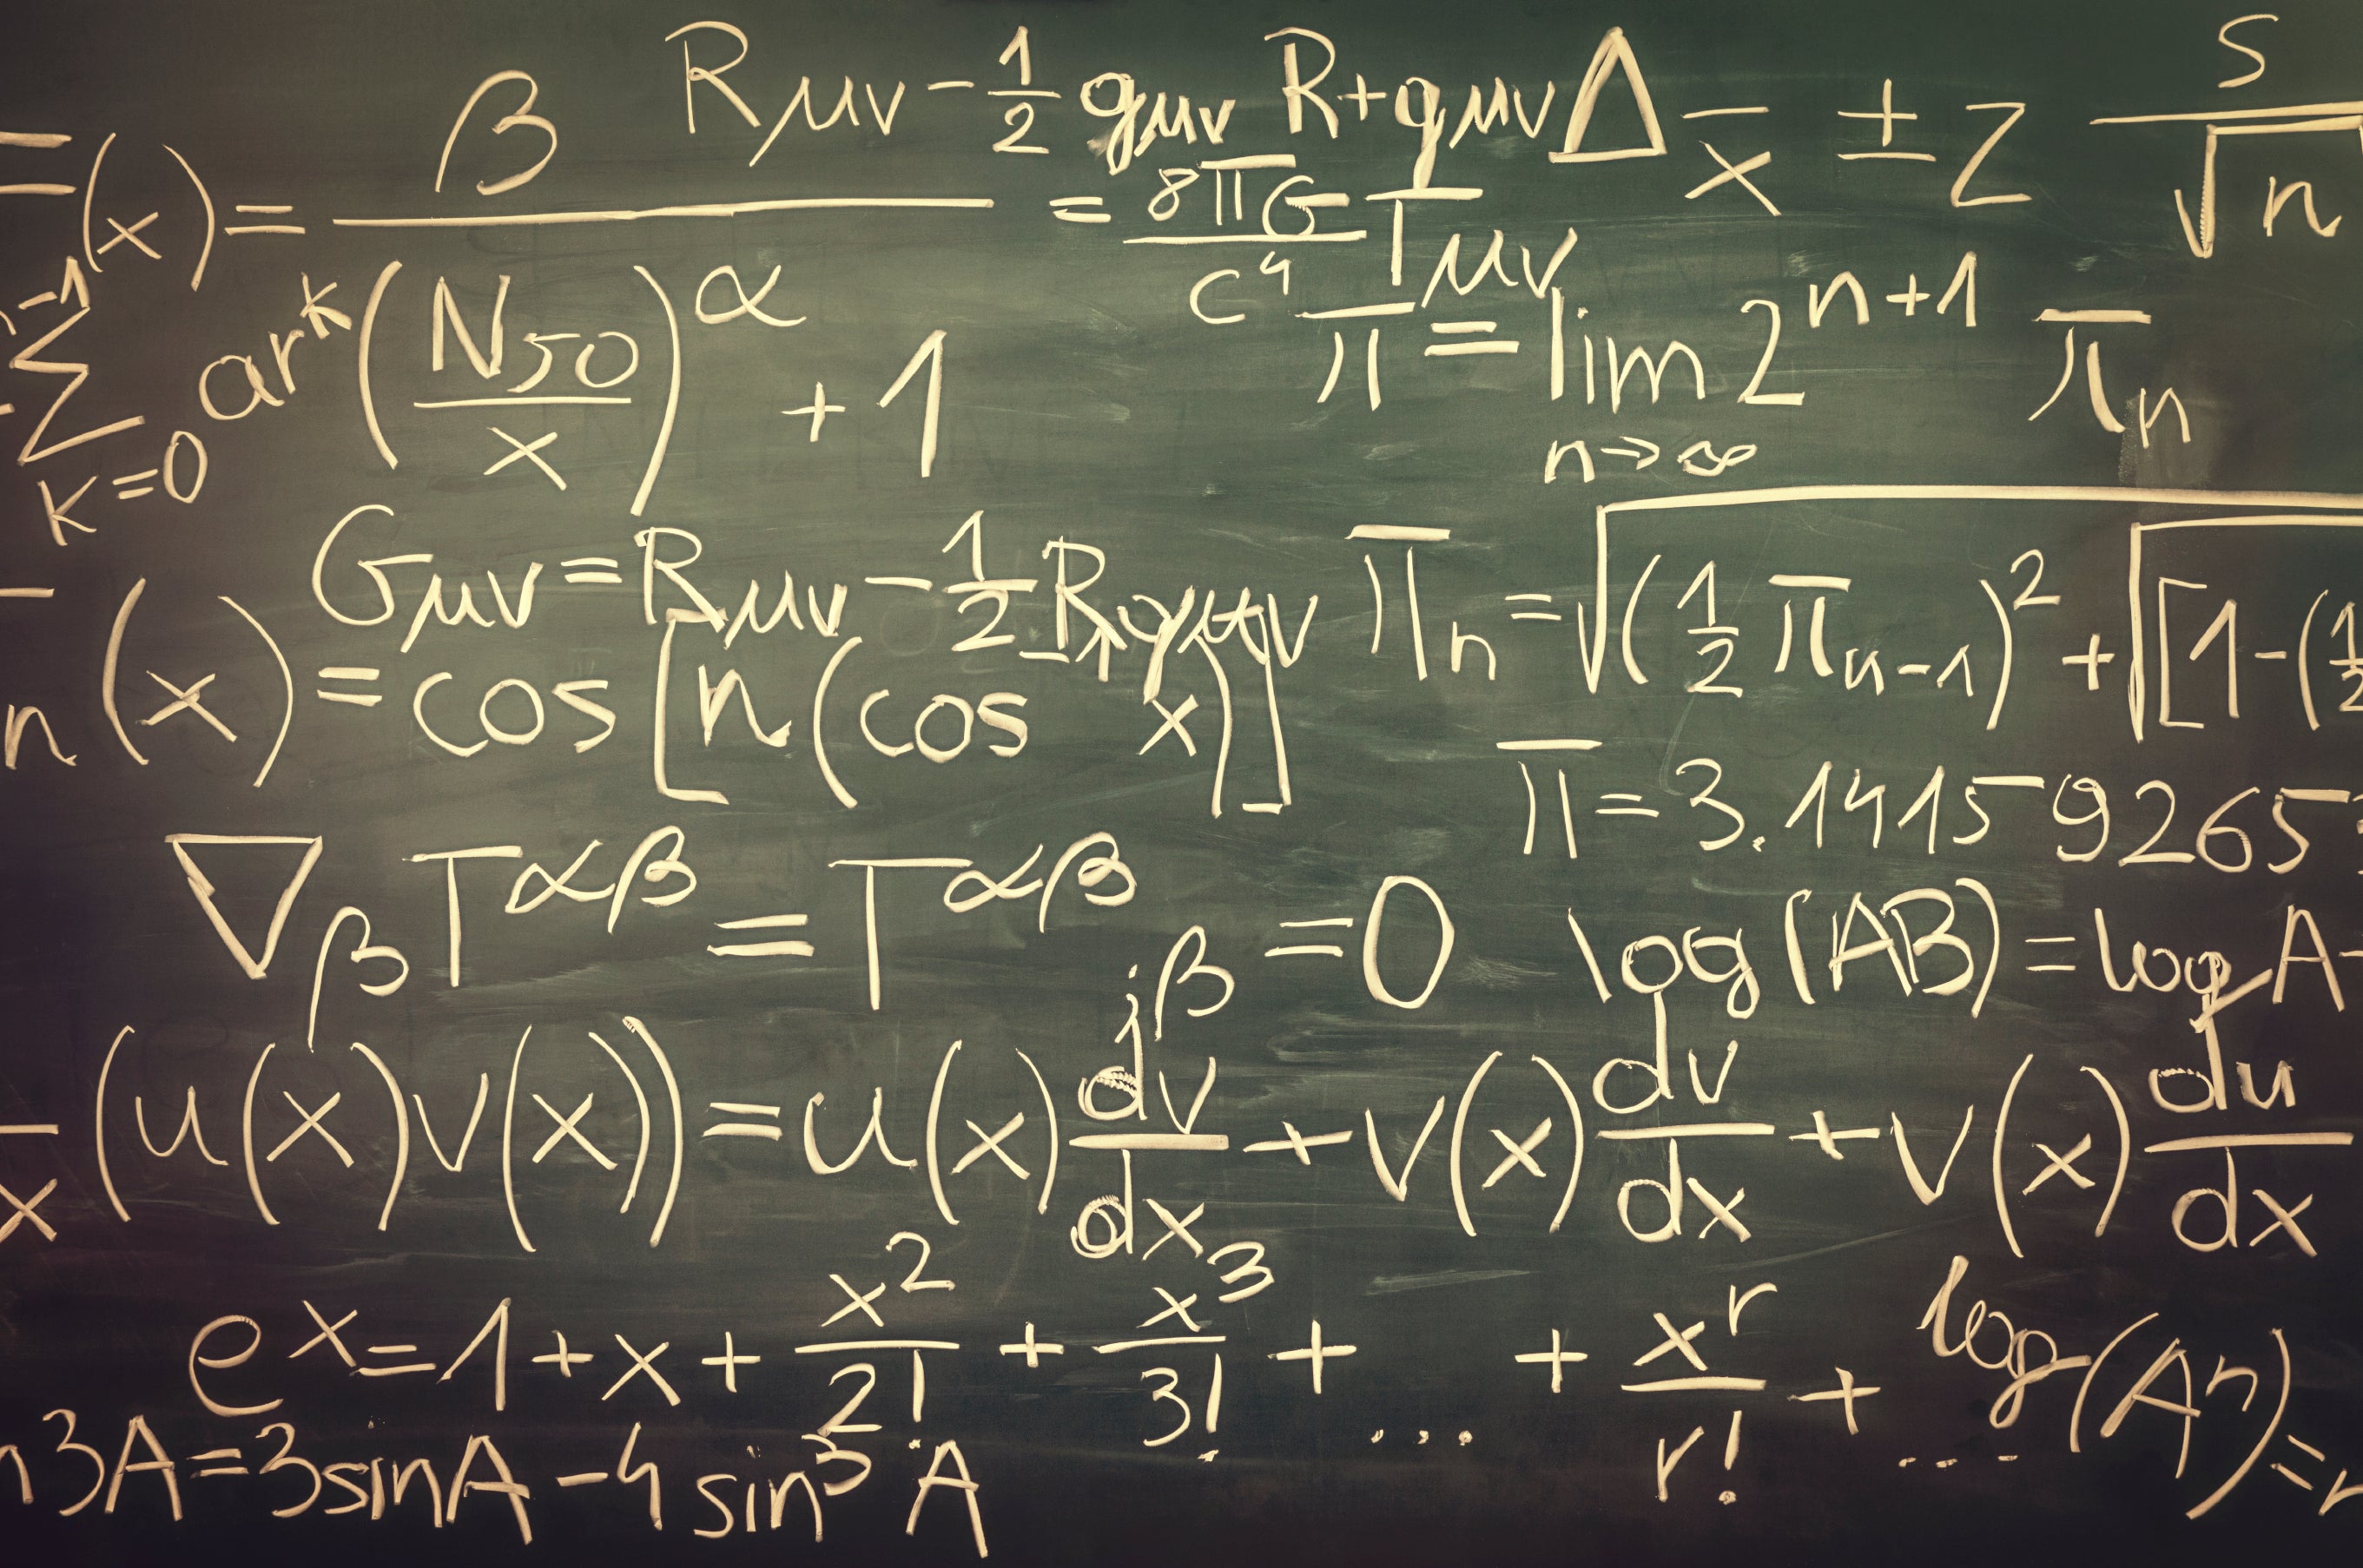 R μν - 1/2 gμν R + gμν Δ = 8πG/c⁴ Tμν
x̄ ± z s/√n
(x) = β / (N50/x)^α + 1
∑ k=0 ar^k
π = lim n→∞ 2^(n+1) π n
Gμν = Rμν - 1/2 R gμν
π n = √(1/2 π n-1)² + √[1-(1/2
n (x) = cos [n (cos⁻¹ x)]
π = 3.14159265
∇β T^αβ = T^αβ ;β = 0
log (AB) = log A -
x (u(x) v(x)) = u(x) dv/dx + v(x) dv/dx + v(x) du/dx
e^x = 1 + x + x²/2! + x³/3! + ... + x^r/r! + ...
log (Aⁿ) =
n3A = 3 sin A - 4 sin³ A